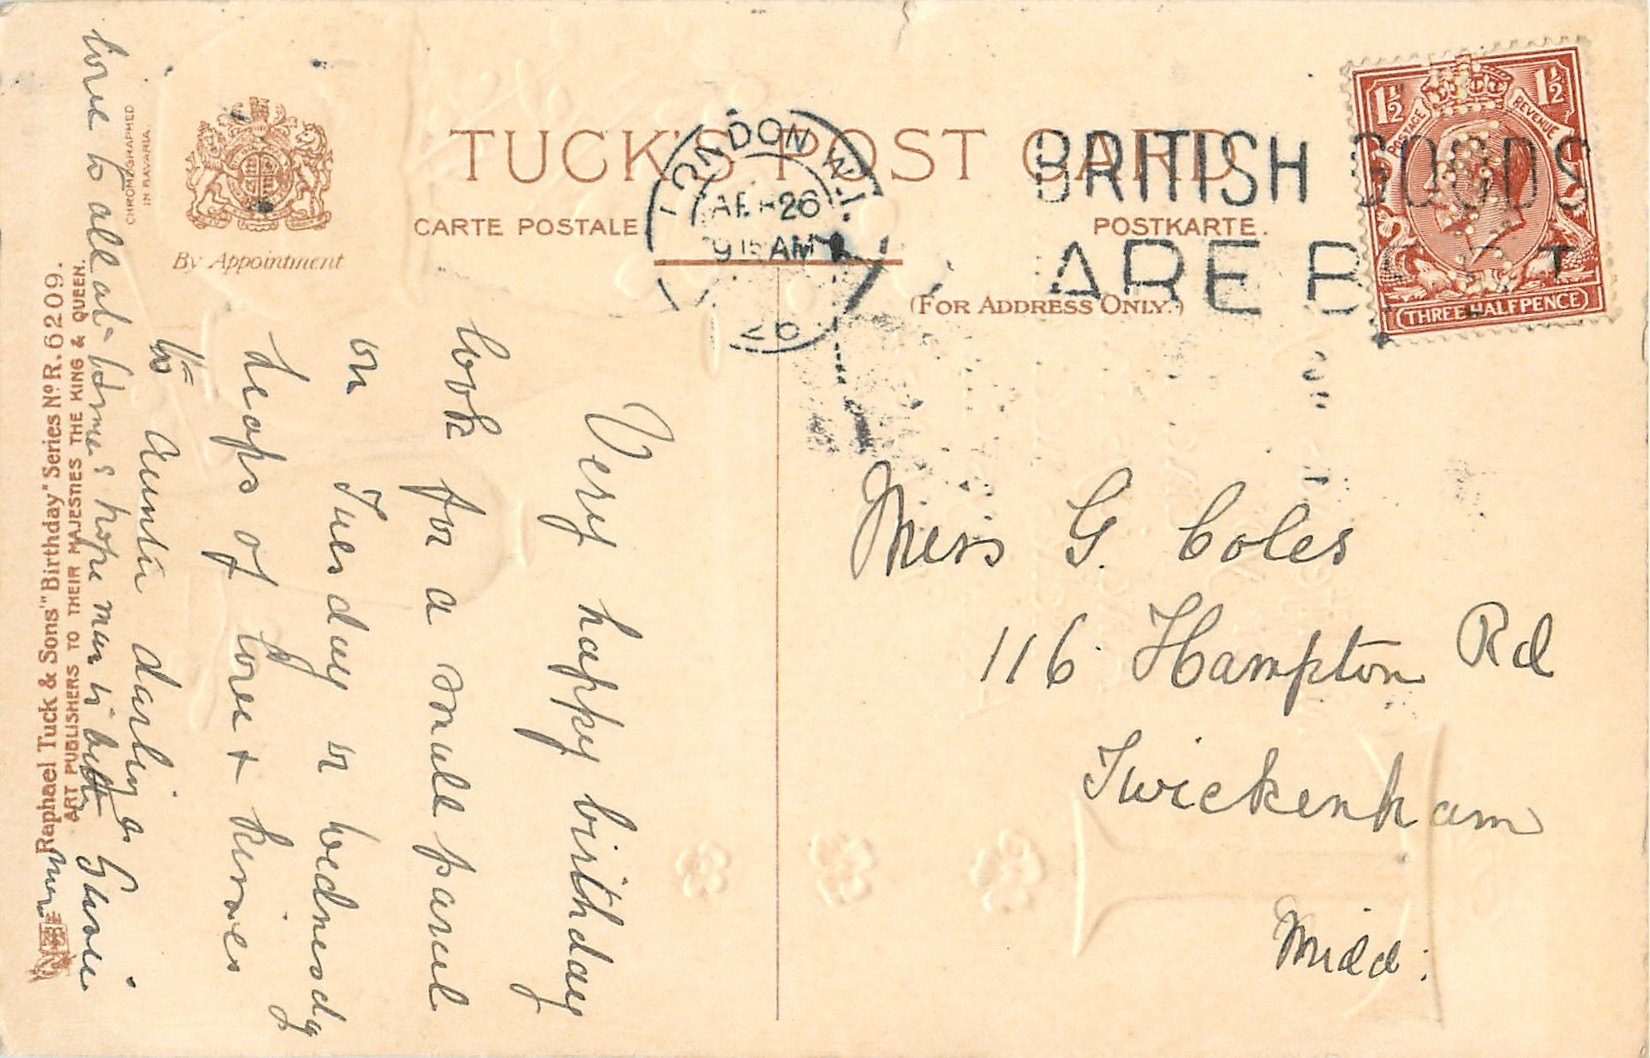 TUCK'S POST CARD
CARTE POSTALE
POSTKARTE.
(FOR ADDRESS ONLY.)
By Appointment
CHROMOGRAPHED
IN BAVARIA.
Raphael Tuck & Sons' "Birthday" Series Nº R. 6209.
ART PUBLISHERS TO THEIR MAJESTIES THE KING & QUEEN.
LONDON W.1
9 15 AM
26
BRITISH GOODS
ARE BEST
1½ 1½
POSTAGE REVENUE
THREE HALFPENCE
Miss G. Coles
116 Hampton Rd
Twickenham
Midd:
Very happy birthday
look for a small parcel
on Tuesday or wednesdy
heaps of love + kisses
to Auntie darling
love to all at home & hope